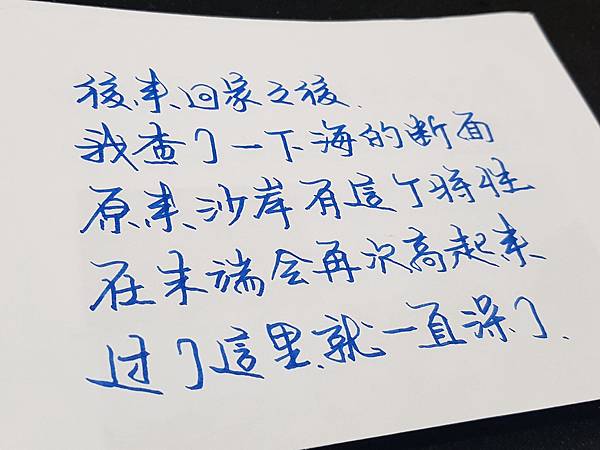 後来回家之後
我查了一下海的断面
原来沙岸有這个特性
在末端会再次高起来
过了這里就一直深了.